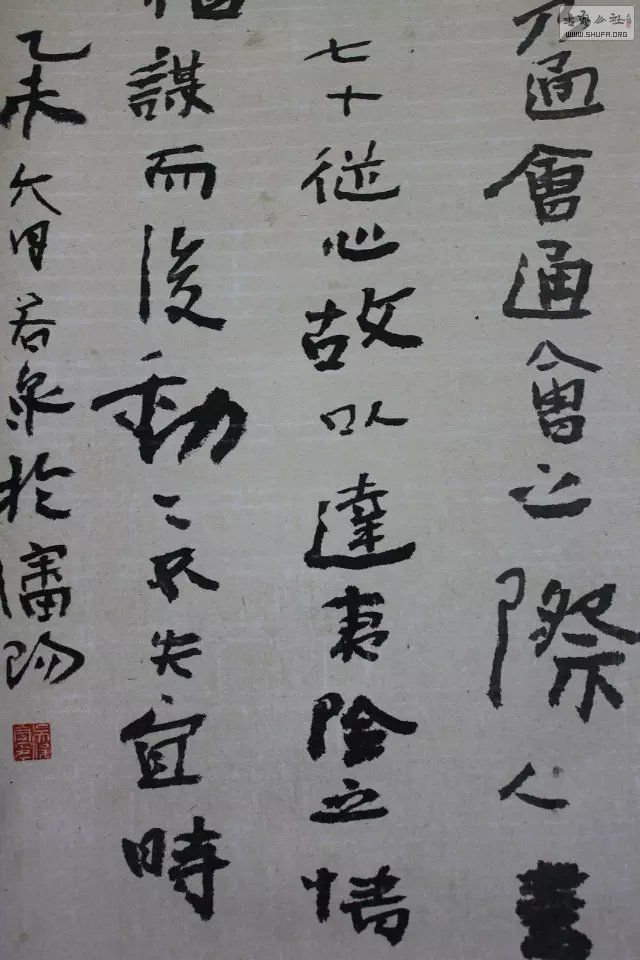 乃通會通會之際人書
七十從心故以達夷險之情
謀而後動〻不失宜時
乙未六月若泉於瀋陽
书法公社
WWW.SHUFA.ORG